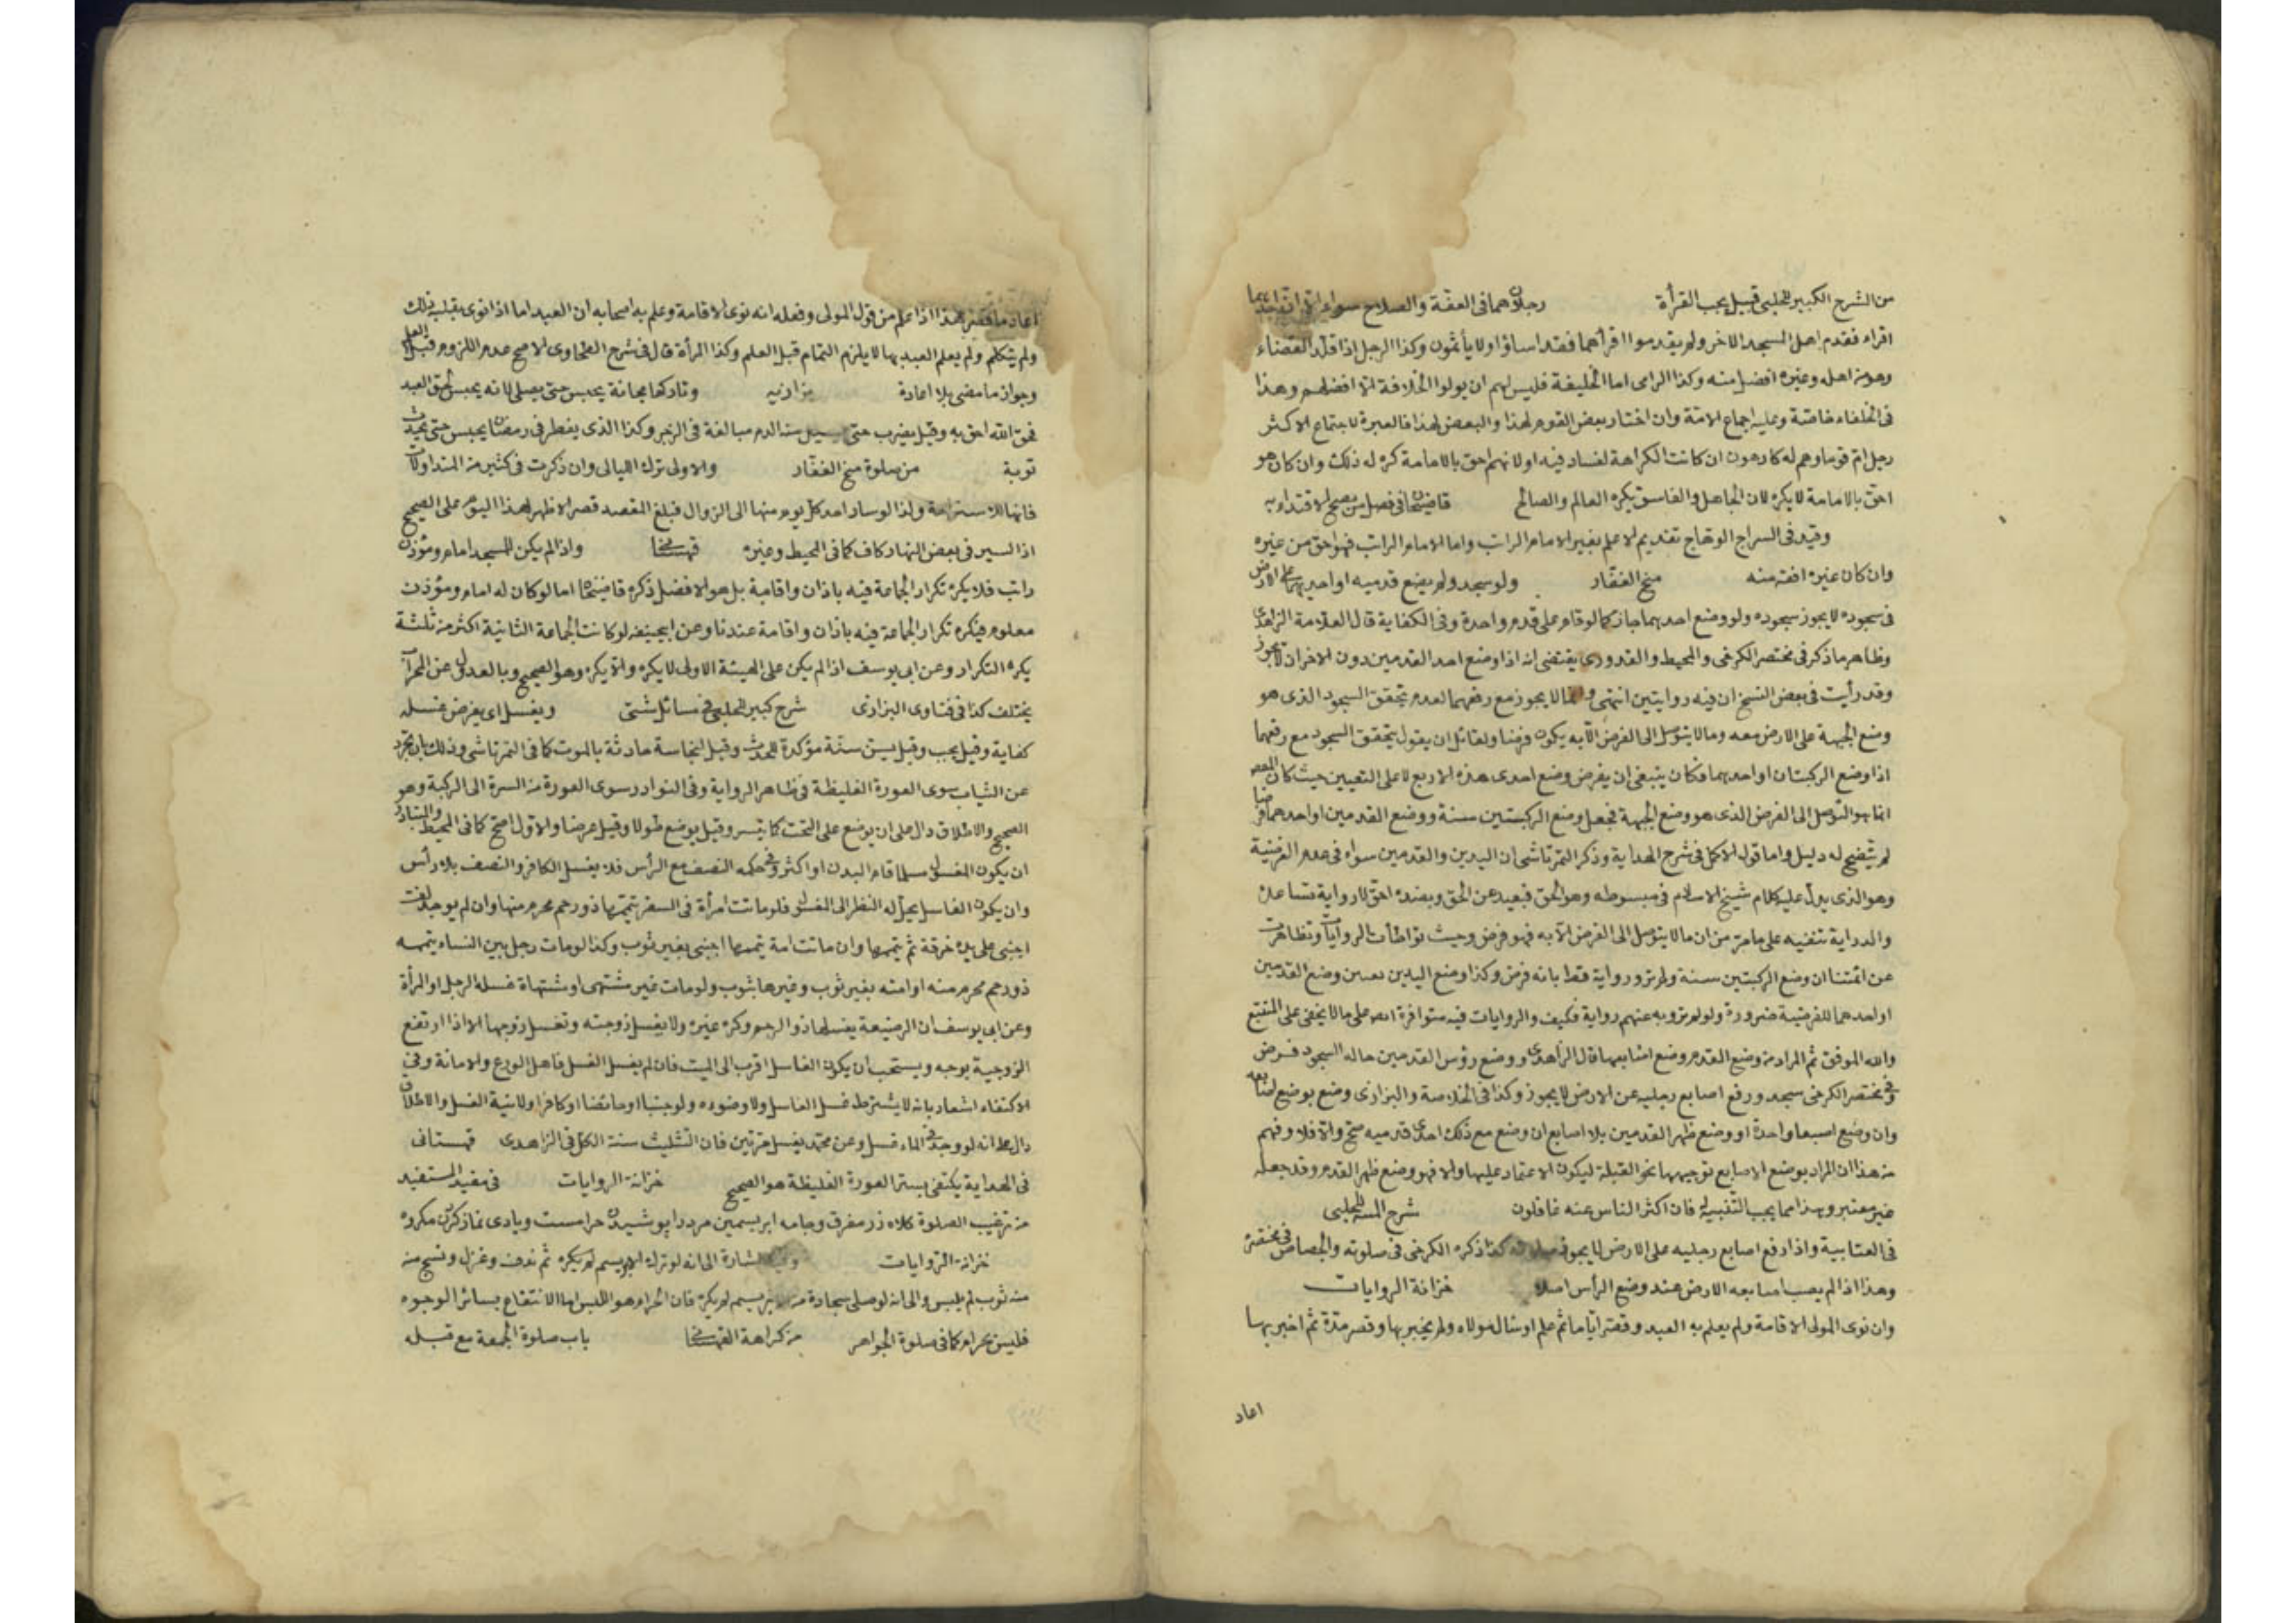 من الشرح الكبير للحلبى قبيل يجب القرأة رجلان هما فى العفة والصلاح سواء الا ان احدهما
اقراء فقدم اهل المسجد الاخر ولم يقدموا اقرأهما فقد اساؤا ولا يأثمون وكذا الرجل اذا قلد القضاء
وهو من اهله وغيره افضل منه وكذا الوالى اما الخليفة فليس لهم ان يولوا الخلافة الا افضلهم وهذا
فى الخلفاء خاصة وعليه اجماع الامة وان اختار بعض القوم لهذا والبعض لهذا فالعبرة لاجتماع الاكثر
رجل ام قوما وهم له كارهون ان كانت الكراهة لفساد فيه او لانهم احق بالامامة كره له ذلك وان كان هو
احق بالامامة لا يكره لان الجاهل والفاسق يكره العالم والصالح قاضيخان فى فصل من يصح الاقتداء به
وقيد فى السراج الوهاج تقديم الاعلم بغير الامام الراتب واما الامام الراتب فهو احق من غيره
وان كان غيره افقه منه منح الغفار ولو سجد ولم يضع قدميه او احديهما على الارض
فى سجوده لا يجوز سجوده ولو وضع احديهما جاز كما لو قام على قدم واحدة وفى الكفاية قال العلامة الزاهدى
وظاهر ما ذكر فى مختصر الكرخى والمحيط والقدورى يقتضى انه اذا وضع احد القدمين دون الاخر ان لا يجوز
وقد رأيت فى بعض النسخ ان فيه روايتين انتهى لا يجوز مع رفعهما لعدم تحقق السجود الذى هو
وضع الجبهة على الارض معه وما لا يتوصل الى الفرض الا به يكون فرضا ولقائل ان يقول يتحقق السجود مع رفعهما
اذا وضع الركبتان او احديهما فكان ينبغى ان يفرض وضع احدى هذه الاربع لا على التعيين حيث كان
انما هو التوصل الى الفرض الذى هو وضع الجبهة فجعل وضع الركبتين سنة ووضع القدمين او احدهما فرضا
لم يتضح له دليل واما قول الاكمل فى شرح الهداية وذكر التمرتاشى ان اليدين والقدمين سواء فى عدم الفرضية
وهو الذى يدل عليه كلام شيخ الاسلام فى مبسوطه وهو الحق فبعيد عن الحق وبضده احق لا رواية تساعده
والدراية تنفيه على ما مر من ان ما لا يتوصل الى الفرض الا به فهو فرض وحيث تواطأت الروايات وتظاهرت
عن ائمتنا ان وضع الركبتين سنة ولم ترد رواية قط بانه فرض وكذا وضع اليدين تعين وضع القدمين
او احدهما للفرضية ضرورة ولو لم ترو به عنهم رواية فكيف والروايات فيه متوافرة على ما لا يخفى على المتتبع
والله الموفق ثم المراد من وضع القدم وضع اصابعها قال الزاهدى ووضع رؤس القدمين حاله السجود فرض
وفى مختصر الكرخى سجد ورفع اصابع رجليه عن الارض لا يجوز وكذا فى الخلاصة والبزازى وضع بوضع اصابعه
وان وضع اصبعا واحدة او وضع ظهر القدمين بلا اصابع ان وضع مع ذلك احدى قدميه صح والا فلا وفهم
من هذا ان المراد بوضع الاصابع توجيهها نحو القبلة ليكون الاعتماد عليها والا فهو وضع ظهر القدم وقد جعله
غير معتبر وهذا مما يجب التنبيه له فان اكثر الناس عنه غافلون شرح المنية للحلبى
فى العتابية واذا رفع اصابع رجليه على الارض لا يجوز صلوته كذا ذكره الكرخى فى صلوته والجصاص فى مختصره
وهذا اذا لم يصب اصابعه الارض عند وضع الرأس اصلا خزانة الروايات
وان نوى المولى الاقامة ولم يعلم به العبد وقصر اياما ثم علم او سأل مولاه ولم يخبر بها وقصر مدة ثم اخبر بها
اعاد
اعاد ما قصر هذا اذا علم من قول المولى وفعله انه نوى الاقامة وعلم به اصحابه ان العبد اما اذا نوى بقلبه ذلك
ولم يتكلم ولم يعلم العبد بها لا يلزم التمام قبل العلم وكذا المرأة قال فى شرح الطحاوى الاصح عدم اللزوم قبل العلم
وجواز ما مضى بلا اعادة بزازيه وتاركها مجانة يحبس حتى يصلى لانه يحبس لحق العبد
فحق الله احق به وقيل يضرب حتى يسيل منه الدم مبالغة فى الزجر وكذا الذى يفطر فى رمضان يحبس حتى يحدث
توبة من صلوة منح الغفار والاولى ترك الليالى وان ذكرت فى كثير من المتداولات
فانها للاستراحة ولذا لو سار احد كل يوم منها الى الزوال فبلغ المقصد قصر الاظهر لهذا اليوم على الصحيح
اذ السير فى بعض النهار كاف كما فى المحيط وغيره قهستانى واذا لم يكن للمسجد امام ومؤذن
راتب فلا يكره تكرار الجماعة فيه باذان واقامة بل هو الافضل ذكره قاضيخان اما لو كان له امام ومؤذن
معلوم فيكره تكرار الجماعة فيه باذان واقامة عندنا وعن ابيحنيفه لو كانت الجماعة الثانية اكثر من ثلثة
يكره التكرار وعن ابى يوسف اذا لم يكن على الهيئة الاولى لا يكره والا يكره وهو الصحيح وبالعدول عن المحراب
يختلف كذا فى فتاوى البزازى شرح كبير للحلبى فى مسائل شتى ويغسل اى يفرض غسله
كفاية وقيل يجب وقيل يسن سنة مؤكدة للحدث وقيل لنجاسة حادثة بالموت كما فى التمرتاشى وذلك بان تجرد
عن الثياب سوى العورة الغليظة فى ظاهر الرواية وفى النوادر سوى العورة من السرة الى الركبة وهو
الصحيح والاطلاق دال على ان يوضع على التخت كما تيسر وقيل يوضع طولا وقيل عرضا والاول اصح كما فى المحيط والمتبادر
ان يكون المغسول مسلما قام البدن او اكثر وفى حكمه النصف مع الرأس فلا يغسل الكافر والنصف بلا رأس
وان يكون الغاسل يحل له النظر الى المغسول فلو ماتت امرأة فى السفر تيممها ذو رحم محرم منها وان لم يوجد لفت
اجنبى على يده خرقة ثم يتممها وان ماتت امة يتممها اجنبى بغير ثوب وكذا لو مات رجل بين النساء يتممه
ذو رحم محرم منه او امته بغير ثوب وغيرها بثوب ولو مات غير مشتهى او مشتهاة غسله الرجل او المرأة
وعن ابى يوسف ان الرضيعة يغسلها ذو الرحم وكره غيره ولا يغسل زوجته وتغسل زوجها الا اذا ارتفع
الزوجية بوجه ويستحب ان يكون الغاسل اقرب الى الميت فان لم يغسل الغسل فاهل الورع والامانة وفى
الاكتفاء اشعار بانه لا يشترط غسل الغاسل ولا وضوءه ولو جنبا او حائضا او كافرا ولا نية الغسل والاطلاق
دال على انه لو وجد فى الماء غسل وعن محمد يغسل مرتين فان التثليث سنة الكل فى الزاهدى قهستانى
فى الهداية يكتفى بستر العورة الغليظة هو الصحيح خزانة الروايات فى مفيد المستفيد
من ترغيب الصلوة كلاه زر مغرق وجامه ابريسمين مرد را پوشيدن حرامست وبا وى نماز كردن مكروه
خزانة الروايات وفيه اشارة الى انه لو ترك الابريسم لم يكره ثم ندف وغزل ونسج منه
منه ثوب لم يلبس والى انه لو صلى سجادة من ابريسم لم يكره فان الحرام هو اللبس اما الانتفاع بسائر الوجوه
فليس بحرام كما فى صلوة الجواهر من كراهة القهستانى باب صلوة الجمعة مع قبله